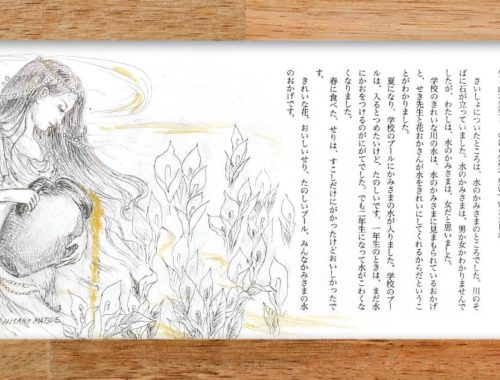 さいしょについたところは、水のかみさまのところでした。川のそ
ばに石が立っていました。水のかみさまは、男か女かわかりませんで
したが、わたしは、水のかみさまは、女だと思いました。
学校のきれいな川の水は、水のかみさまに見まもられているおかげ
と、せき先生と花おかさんが水をきれいにしてくれるからだというこ
とがわかりました。
夏になり、学校のプールにかみさまの水が入りました。学校のプー
ルは、入るとつめたいけど、たのしいです。一年生のときは、まだ水
にかおをつけるのがにがてでした。でも二年生になって水がこわくな
くなりました。
春に食べた、せりは、すこしだけにがかったけどおいしかったで
す。
きれいな花、おいしいせり、たのしいプール、みんなかみさまの水
のおかげです。
HISAKO MATSUE